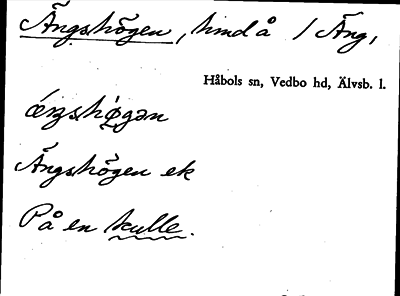 Ängshögen, hmd å / Äng,
Håbols sn, Vedbo hd, Älvsb. l.
Ängshögen ek
På en kulle.